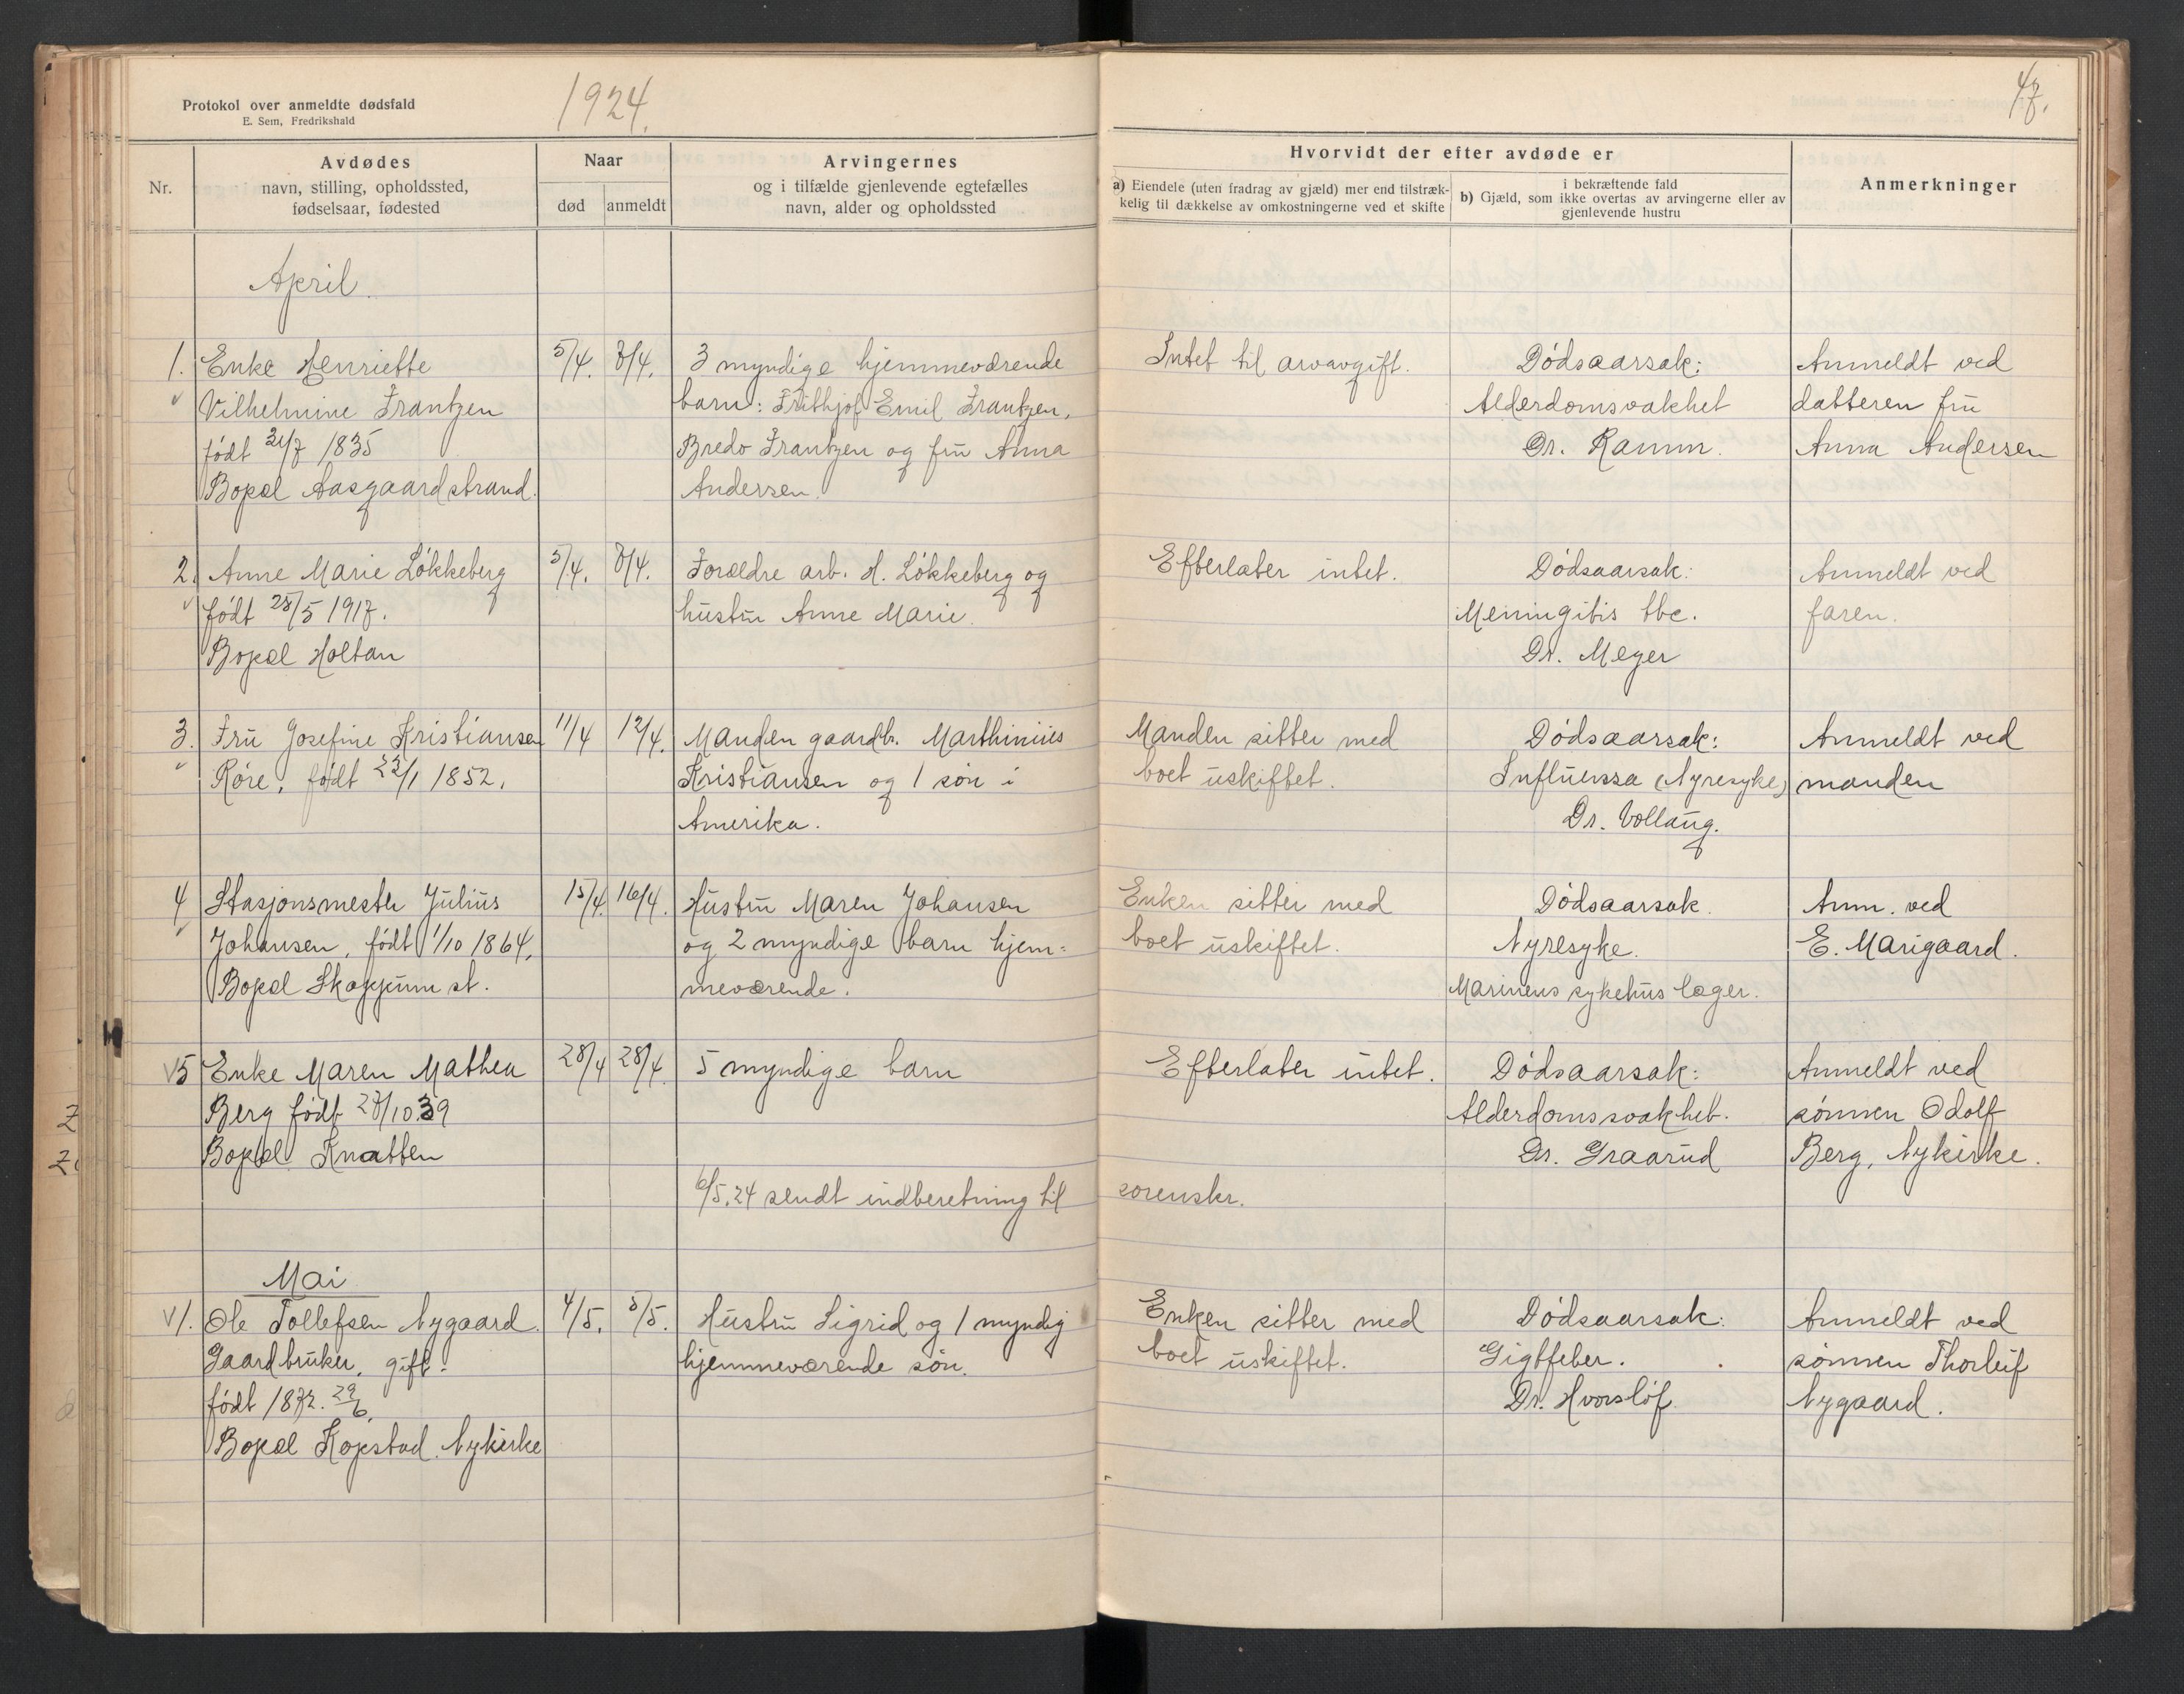 Protokol over anmeldte dødsfald
E. Sem, Fredrikshald
1924.
47.
Nr.
Avdødes
navn, stilling, opholdssted,
fødselsaar, fødested
Naar
død
anmeldt
Arvingernes
og i tilfælde gjenlevende egtefælles
navn, alder og opholdssted
Hvorvidt der efter avdøde er
a) Eiendele (uten fradrag av gjæld) mer end tilstræk-
kelig til dækkelse av omkostningerne ved et skifte
i bekræftende fald
b) Gjæld, som ikke overtas av arvingerne eller av
gjenlevende hustru
Anmerkninger
April.
1. Enke Henriette
Vilhelmine Frantzen
født 21/7 1835
Bopæl Aasgaardstrand.
5/4. 8/4.
3 myndige hjemmeværende
barn: Frithjof Emil Frantzen,
Bredo Frantzen og fru Anna
Andersen.
Intet til arvavgift.
Dødsaarsak:
Alderdomsvakhet
Dr. Ramm.
Anmeldt ved
datteren fru
Anna Andersen
2. Anne Marie Løkkeberg
født 28/5 1917.
Bopæl Holtan
5/4. 8/4.
Forældre arb. H. Løkkeberg og
hustru Anne Marie.
Efterlater intet.
Dødsaarsak:
Meningitis tbc.
Dr. Meyer
Anmeldt ved
faren.
3. Fru Josefine Kristiansen
Røre, født 22/1 1852.
11/4 12/4.
Manden gaardb. Marthinius
Kristiansen og 1 søn i
Amerika.
Manden sitter med
boet uskiftet.
Dødsaarsak:
Influensa (Nyresyke)
Dr. Vollaug.
Anmeldt ved
manden
4 Stasjonsmester Julius
Johansen, født 1/10 1864,
Bopæl Skoppum st.
15/4. 16/4.
Hustru Maren Johansen
og 2 myndige barn hjem=
meværende.
Enken sitter med
boet uskiftet.
Dødsaarsak.
Nyresyke.
Marinens sykehus læger.
Anm. ved
E. Marigaard.
5 Enke Maren Mathea
Berg født 28/10 39
Bopæl Knatten
28/4 28/4.
5 myndige barn
Efterlater intet.
Dødsaarsak:
Alderdomssvakhet.
Dr. Graarud
Anmeldt ved
sønnen Odolf
Berg, Nykirke.
6/5.24 sendt indberetning til sorenskr.
Mai
1. Ole Tollefsen Nygaard.
Gaardbruker, gift.
født 1872. 29/6.
Bopæl Kopstad. Nykirke
4/5. 5/5.
Hustru Sigrid og 1 myndig
hjemmeværende søn.
Enken sitter med
boet uskiftet.
Dødsaarsak:
Gigtfeber.
Dr. Hvorsløf
Anmeldt ved
sønnen Thorleif
Nygaard.